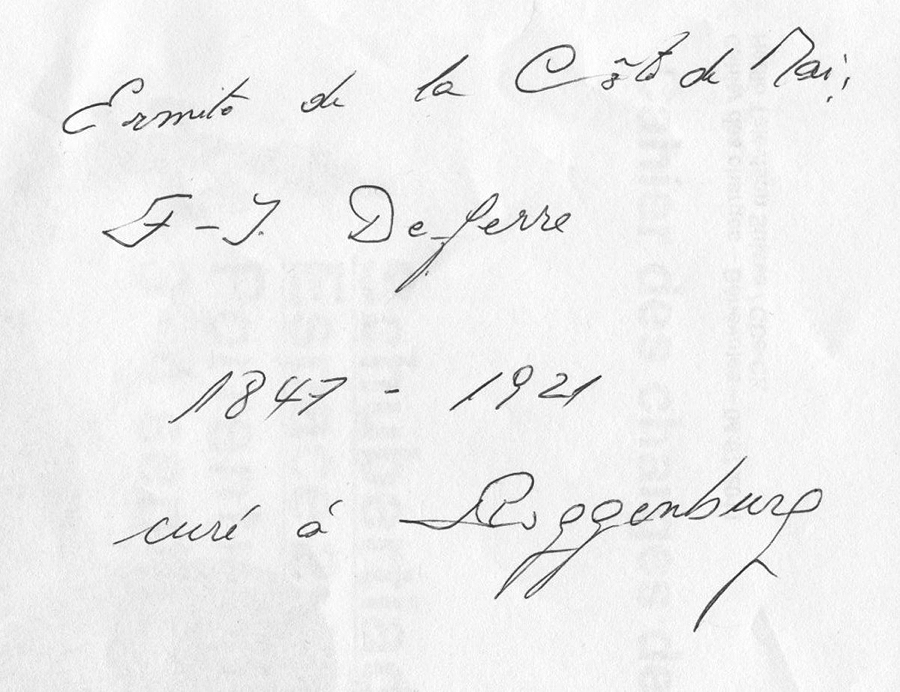 Ermite de la Côte de Mai;
F-J. Deferre
1847 - 1921
curé à Roggenburg